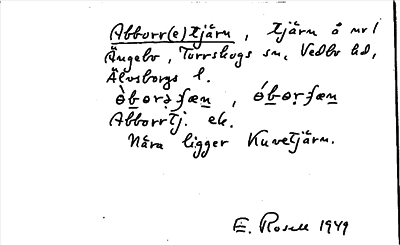 Abborr(e)tjärn, tjärn å nr 1
Ängebo, Torrskogs sn, Vedbo hd,
Älvsborgs l.
Abborrtj. ek.
Nära ligger Kuvetjärn.
E. Rosell 1949